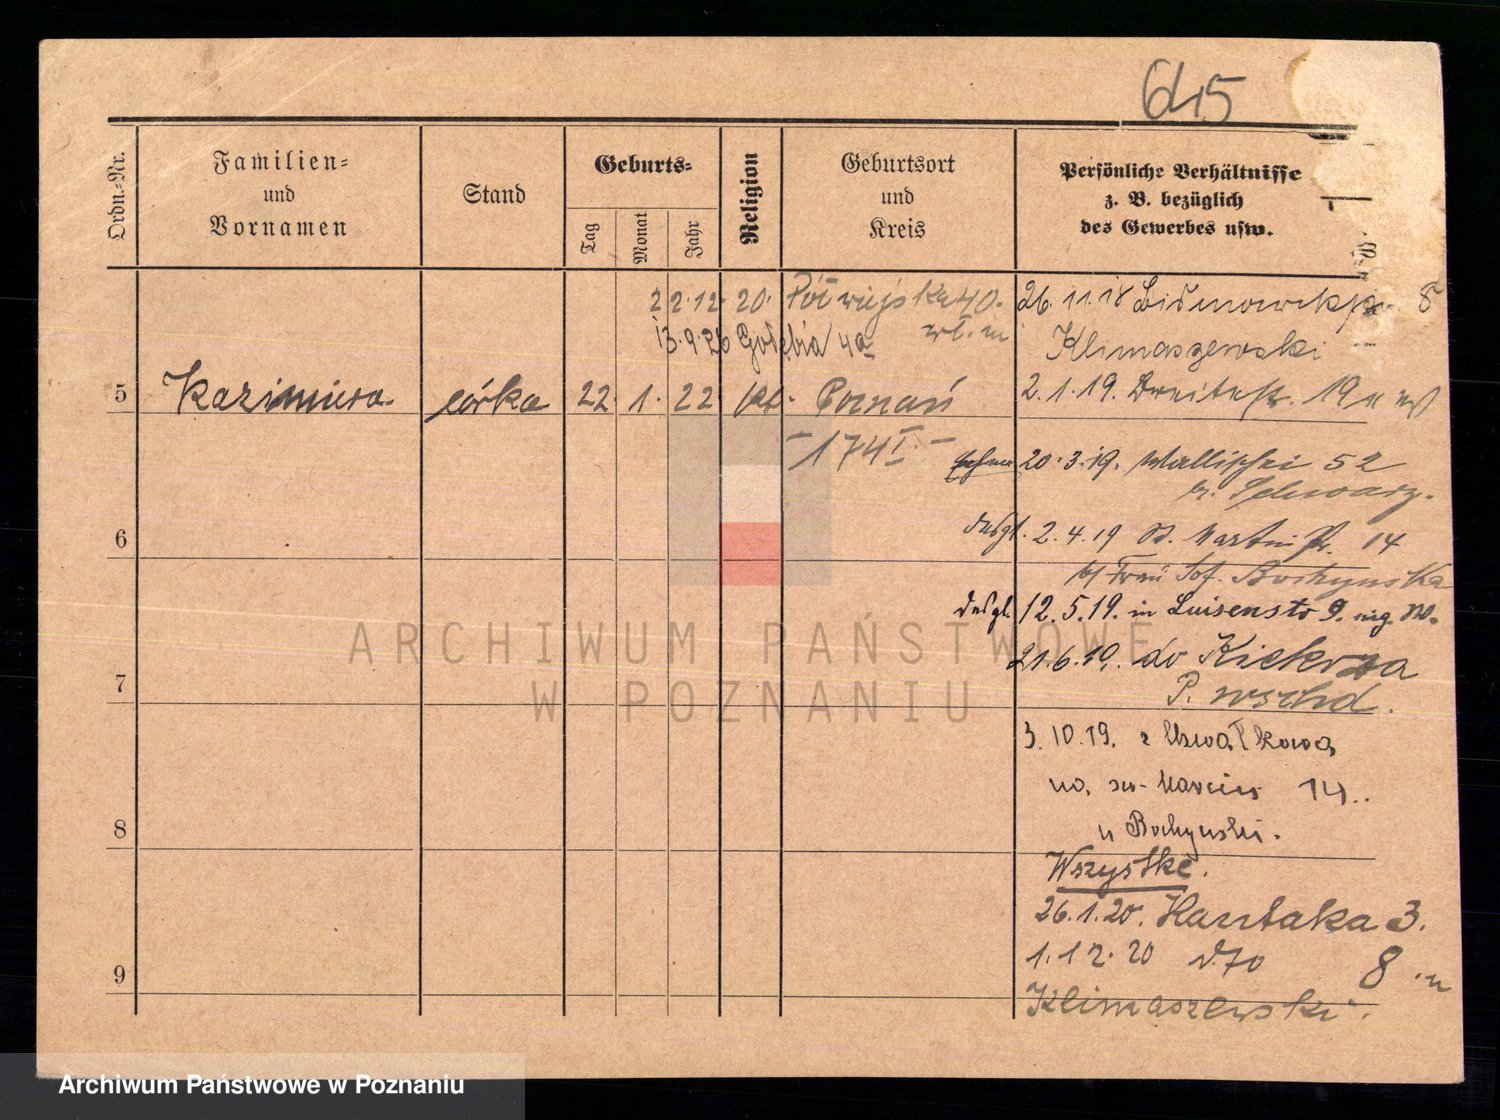 645
Ordn.-Nr.
Familien-
und
Vornamen
Stand
Geburts-
Tag
Monat
Jahr
Religion
Geburtsort
und
Kreis
Persönliche Verhältnisse
z. B. bezüglich
des Gewerbes usw.
22.12. 20. Półwiejska 40.
13.9.26 Gołębia 4a
26. 11. 18 Bismarckstr. 8
Klimaszewski
5 Kazimiera córka 22. 1. 22. kat. Poznań
2. 1. 19. Breitestr. 19
- 174 I. -
20. 3. 19. Wallischei 52
b. Schwarz.
desgl. 2. 4. 19 St. Martinstr. 14
6
b/ Frau Bochynska
desgl. 12. 5. 19. in Luisenstr 9.
21. 6. 19. do Kiekrza
P. wschd.
7
3. 10. 19. z
na, sw. Marcin 14.
u Bochynski.
8
Wszystke.
26. 1. 20. Hantaka 3.
1. 12. 20 dto 8
9
Klimaszewski.
ARCHIWUM PAŃSTWOWE
W POZNANIU
Archiwum Państwowe w Poznaniu